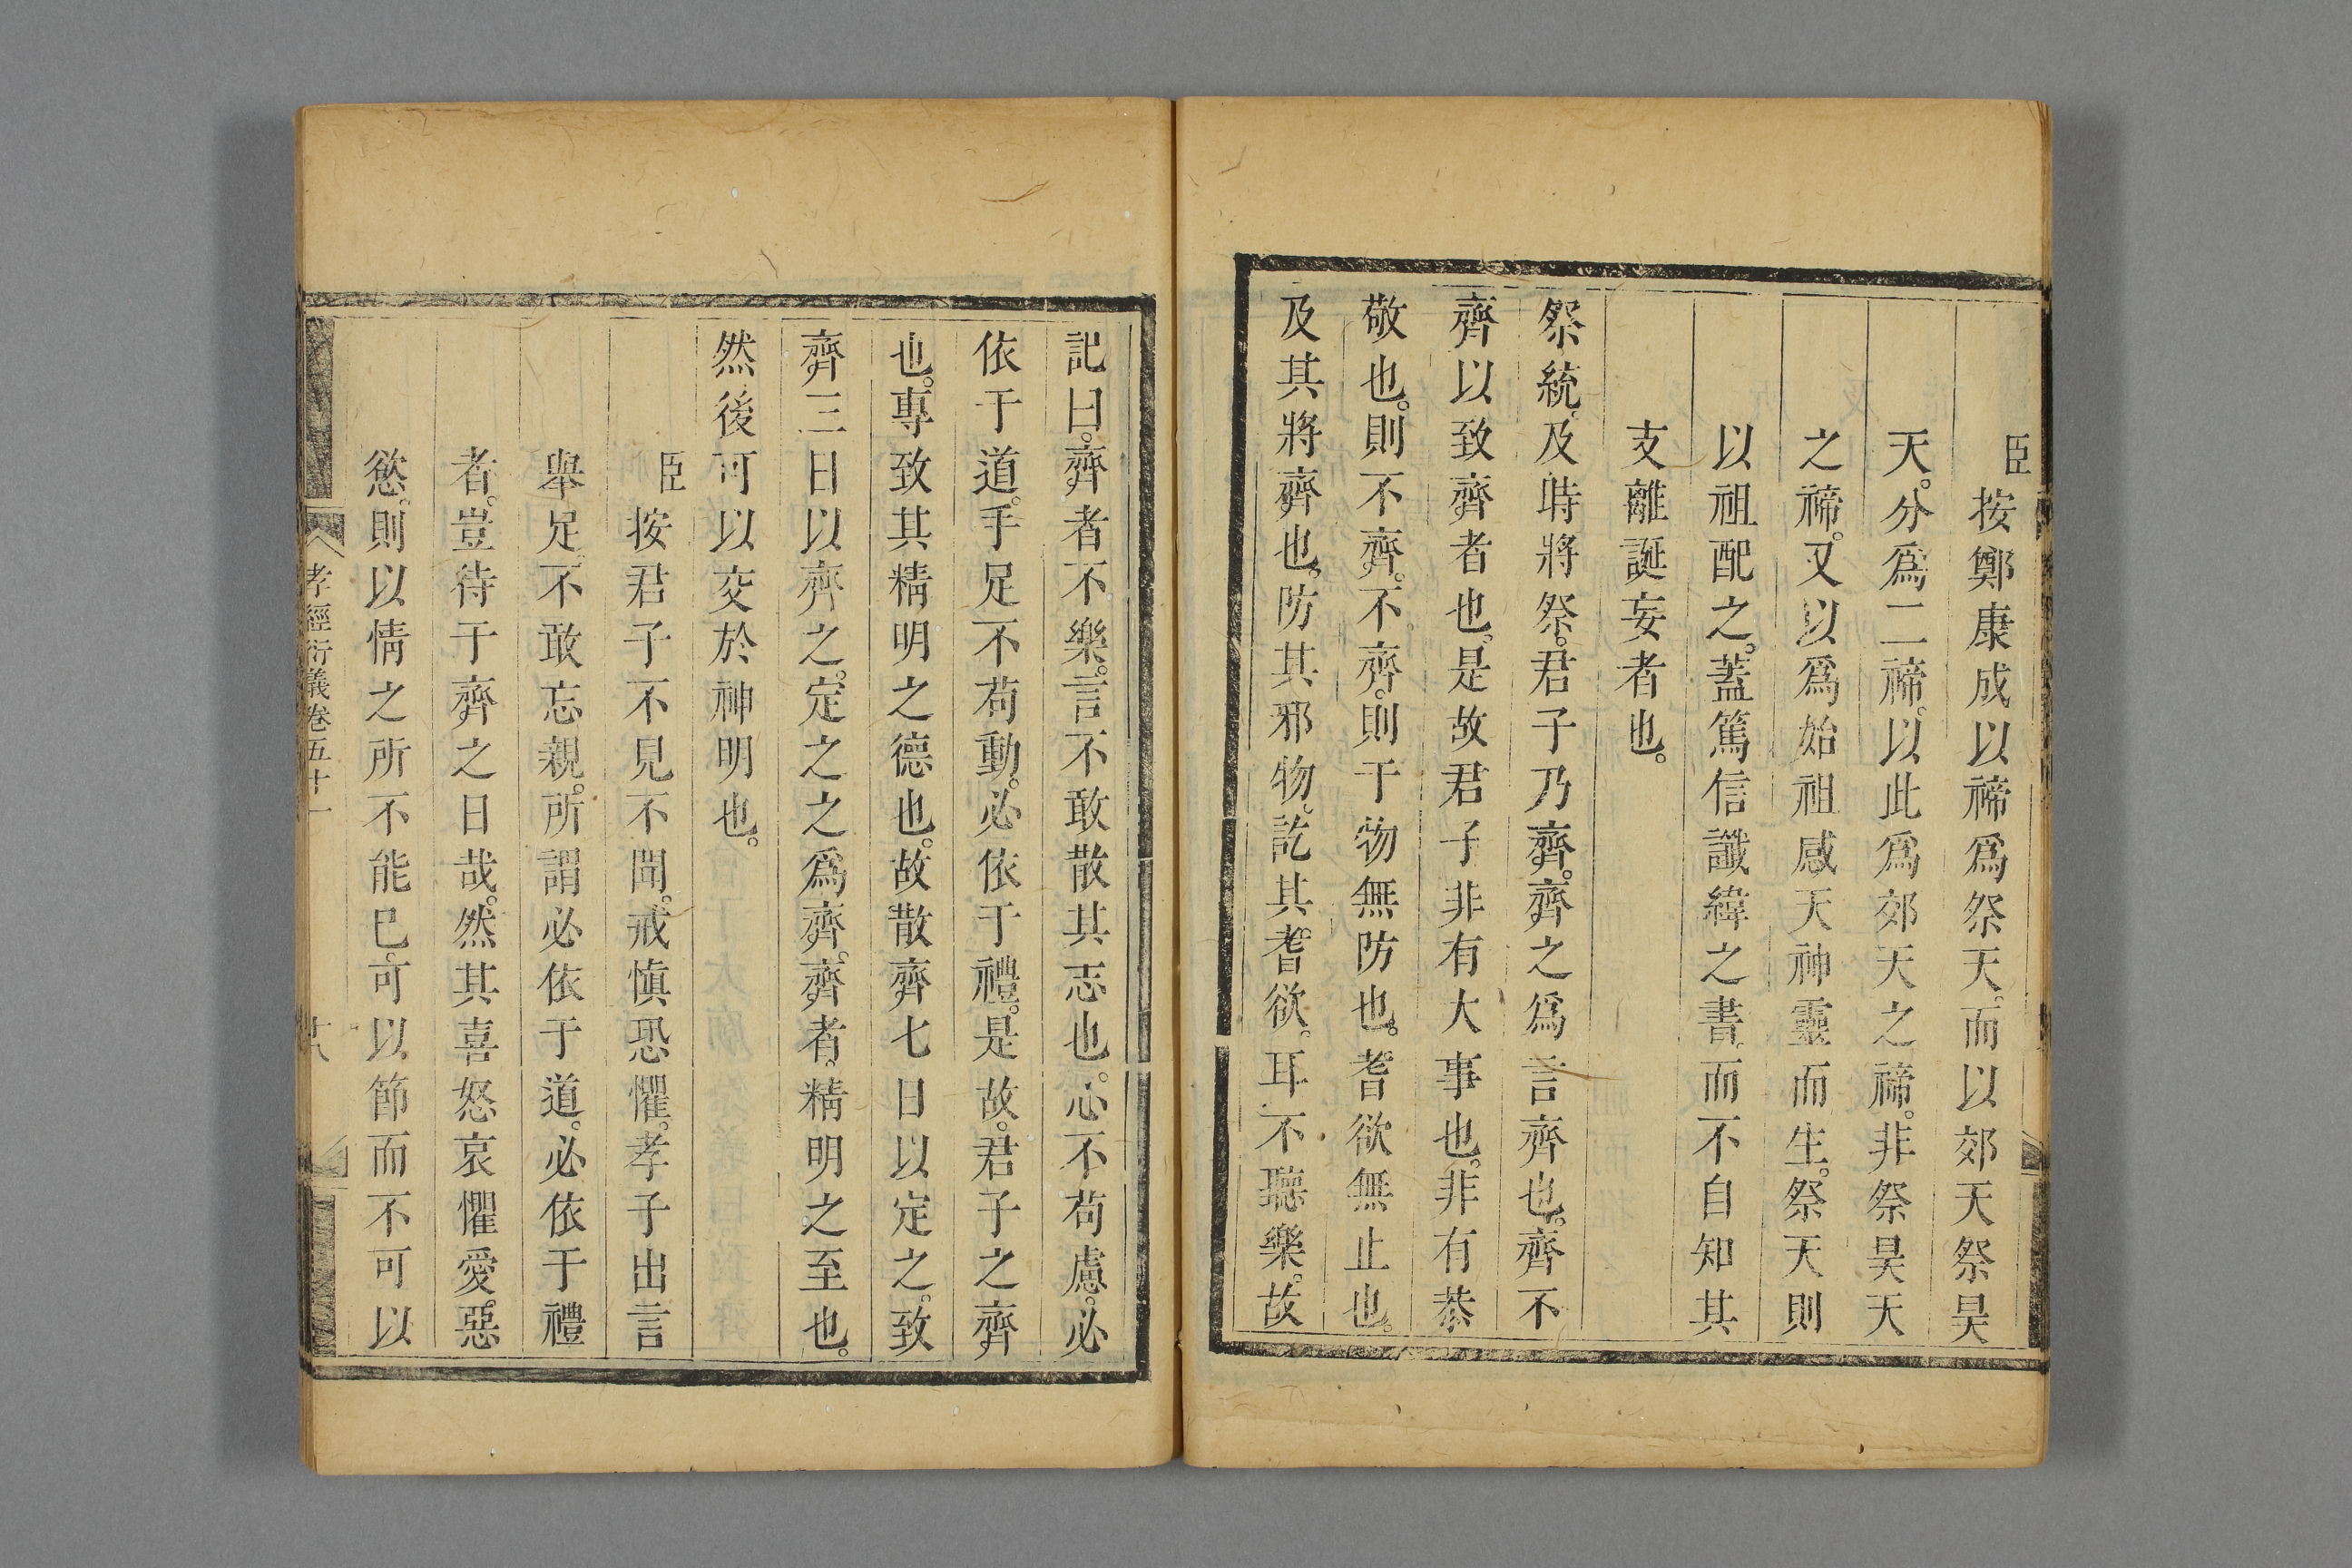 臣按鄭康成以禘爲祭天。而以郊天祭昊
天。分爲二禘。以此爲郊天之禘。非祭昊天
之禘。又以爲始祖感天神靈而生。祭天則
以祖配之。蓋篤信讖緯之書。而不自知其
支離誕妄者也。
祭統。及時將祭。君子乃齊。齊之爲言齊也。齊不
齊以致齊者也。是故君子非有大事也。非有恭
敬也。則不齊。不齊。則于物無防也。耆欲無止也。
及其將齊也。防其邪物。訖其耆欲。耳不聽樂。故
記曰。齊者不樂。言不敢散其志也。心不苟慮。必
依于道。手足不苟動。必依于禮。是故。君子之齊
也。專致其精明之德也。故散齊七日以定之。致
齊三日以齊之。定之之爲齊。齊者。精明之至也。
然後可以交於神明也。
臣按君子不見不聞。戒愼恐懼。孝子出言
舉足不敢忘親。所謂必依于道。必依于禮
者。豈待于齊之日哉。然其喜怒哀懼愛。惡
慾。則以情之所不能已。可以節而不可以
孝經衍義卷五十一
十八